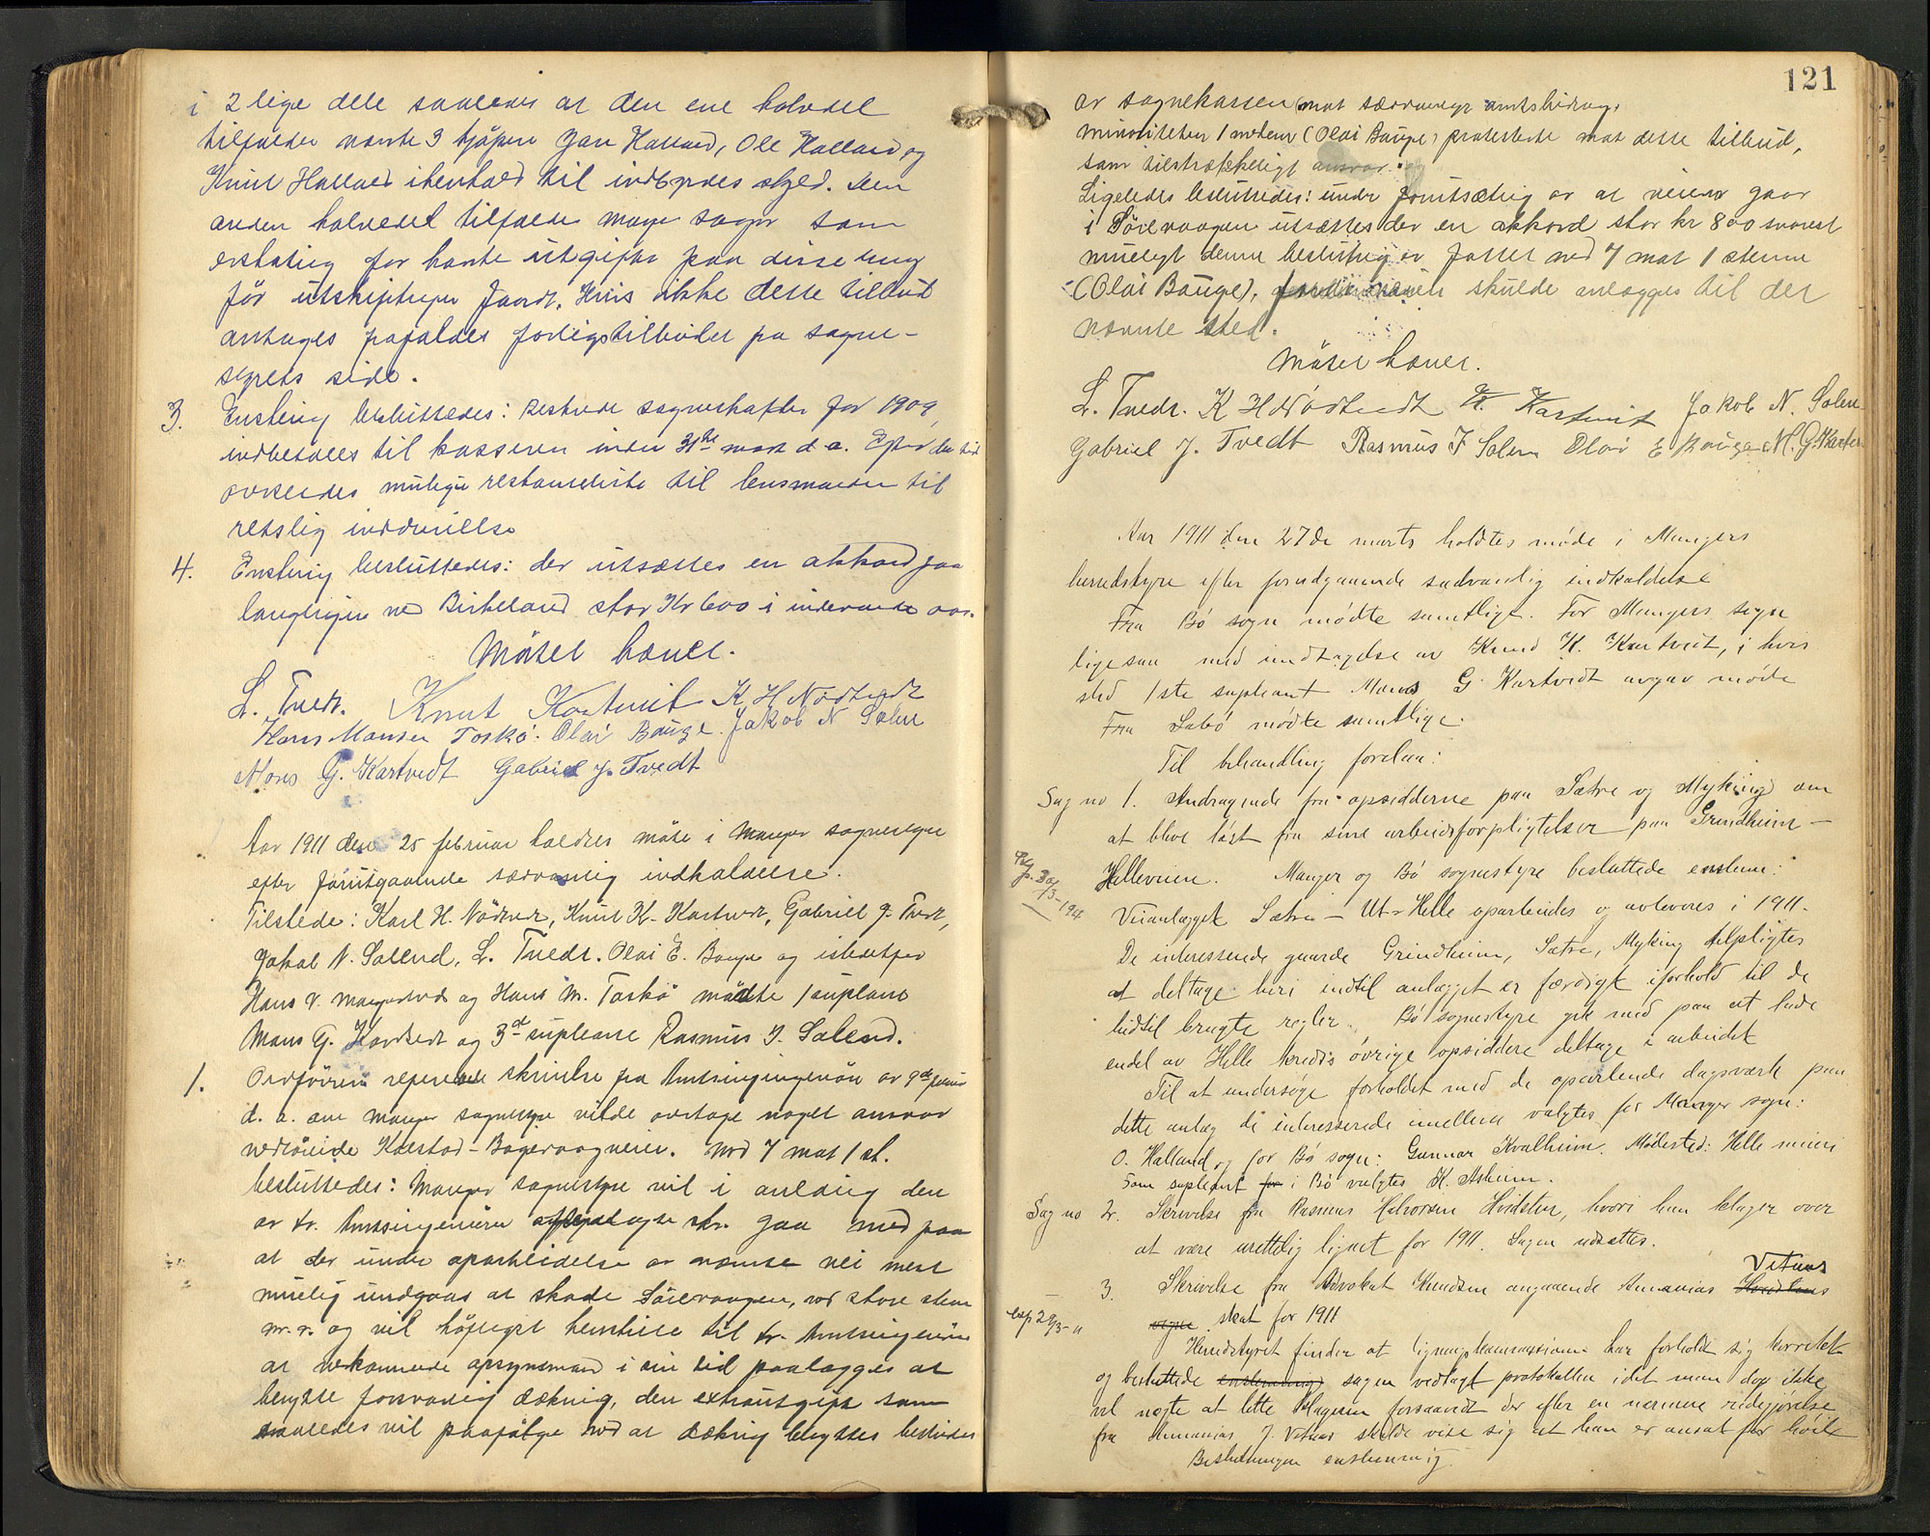 i 2 lige dele saaledes at den ene halvdel
tilfalder nævnte 3 kjøpere Jan Halland, Ole Halland og
Knut Halland i henhold til indbyrdes skjød. Den
anden halvedel tilfalder Manger sogn som
erstating for havte utgifter paa disse
før utskiftingen foordt. Hvis ikke dette tilbud
antages frafalder forligstilbudet fra sogne-
styrets side.
3. Enstemig besluttedes: Resterede sogneskatter for 1909,
indbetales til kassereren inden 31te mars d.a. Efter den tid
oversendes mulige restanseliste til lensmanden til
retslig inddrivelse
4. Enstemig besluttedes: der utsættes en akkord paa
ved Birkeland stor Kr 600 i indeværende aar.
Møtet hævet.
L. Tvedt. Knut Kartveit K H Nødtvedt
Hans Monsen Toskø. Olai Bauge. Jakob N Solen
Mons G. Kartvedt Gabriel J. Tvedt
Aar 1911 den 25 februar holdtes møte i Manger sognestyre
efter forutgaaende sædvanlig indkaldelse.
Tilstede: Karl H. Nødtvedt, Knut K. Kartveit, Gabriel J. Tvedt,
Jakob N. Solend, L. Tvedt. Olai E. Bauge og istedetfor
Hans V. og Hans M. Toskø mødte 1 supleant
Mons G. Kartvedt og 3de supleant Rasmus J. Solend.
1. Ordføreren refererede skrivelse fra Amtsingeniøren av 9de januar
d.a. om Manger sognestyre vilde overtage noget ansvar
vedrørende Kolstad-Bogevaagveien. Med 7 mot 1 st.
besluttedes: Manger sognestyre vil i anledning den
av hr. Amtsingeniøren skr. gaa med paa
at der under oparbeidelse av nævnte vei mest
muelig undgaas at skade Søilevaagen, ved store stene
m.v. og vil høfligst henstille til hr. Amtsingeniøren
at vedkommende opsynsmand i sin tid paalægges at
benytte forsvarlig dækning, den extrautgift som
saaledes vil paafølge ved at dækning benyttes bestrides
121
av sognekassen mot sædvanlige amtsbidrag.
Minoriteten 1 medlem (Olai Bauge) protesterte mot dette tilbud,
som tilstrækkeligt ansvar.
Ligeledes besluttedes: under forutsætnig av at veien gaar
i Søilevaagen utsættes der en akkord stor kr 800 snarest
mueligt denne beslutnig er fattet med 7 mot 1 stemme
(Olai Bauge), veien skulde anlægges til det
nævnte sted.
Møtet hævet.
L. Tvedt. K H Nødtvedt K. Kartveit Jakob N. Solen
Gabriel J. Tvedt Rasmus J Solen Olai E Bauge M. G. Kartve
Aar 1911 den 27de marts holdtes møde i Mangers
herredstyre efter forudgaaende sædvanlig indkaldelse
Fra Bø sogn mødte samtlige. For Mangers sogn
ligesaa med undtagelse av Knud K. Kartveit, i hvis
sted 1ste supleant Mons G. Kartvedt avgav møde
Fra Sæbø mødte samtlige.
Til behandling forelaa:
Sag no 1. Andragende fra opsidderne paa Sætre og Myking om
at blive løst fra sine arbeidsforpligtelser paa Grindheim –
Helleveien. Manger og Bø sognestyre besluttede enstem:
Veianlægget Sætre – Ut-Helle oparbeides og avleveres i 1911.
De interessende gaarde Grindheim, Sætre, Myking tilpligtes
at deltage heri indtil anlægget er færdigt i forhold til de
hidtil brugte regler. Bø sognestyre gik med paa at lade
endel av Helle kreds øvrige opsiddere deltage i arbeidet
Til at undersøge forholdet med de oparbeidende dagsværk paa
dette anlæg de interesserede imellem valgtes for Manger sogn:
O. Halland og for Bø sogn: Gunnar Kvalheim. Mødested: Helle meieri
Som supleant for i Bø valgtes H. Askeim.
Sag no 2. Skrivelse fra Rasmus Halvorsen Hvidsten, hvori han klager over
at være urettelig lignet for 1911. Sagen udsættes.
3. Skrivelse fra Advokat Knudsen angaaende Annanias Vetaas
exp 29/3-11 skat for 1911
Herredstyret finder at ligningskommissionen har forholdt sig korrekt
og besluttede enstemmig sagen vedlagt protokollen idet man dog ikke
vil nægte at lette klageren forsaavidt der efter en nærmere redegjørelse
fra Annanias J. Vetaas skulde vise sig at han er ansat for høit
Beslutningen enstemmig.